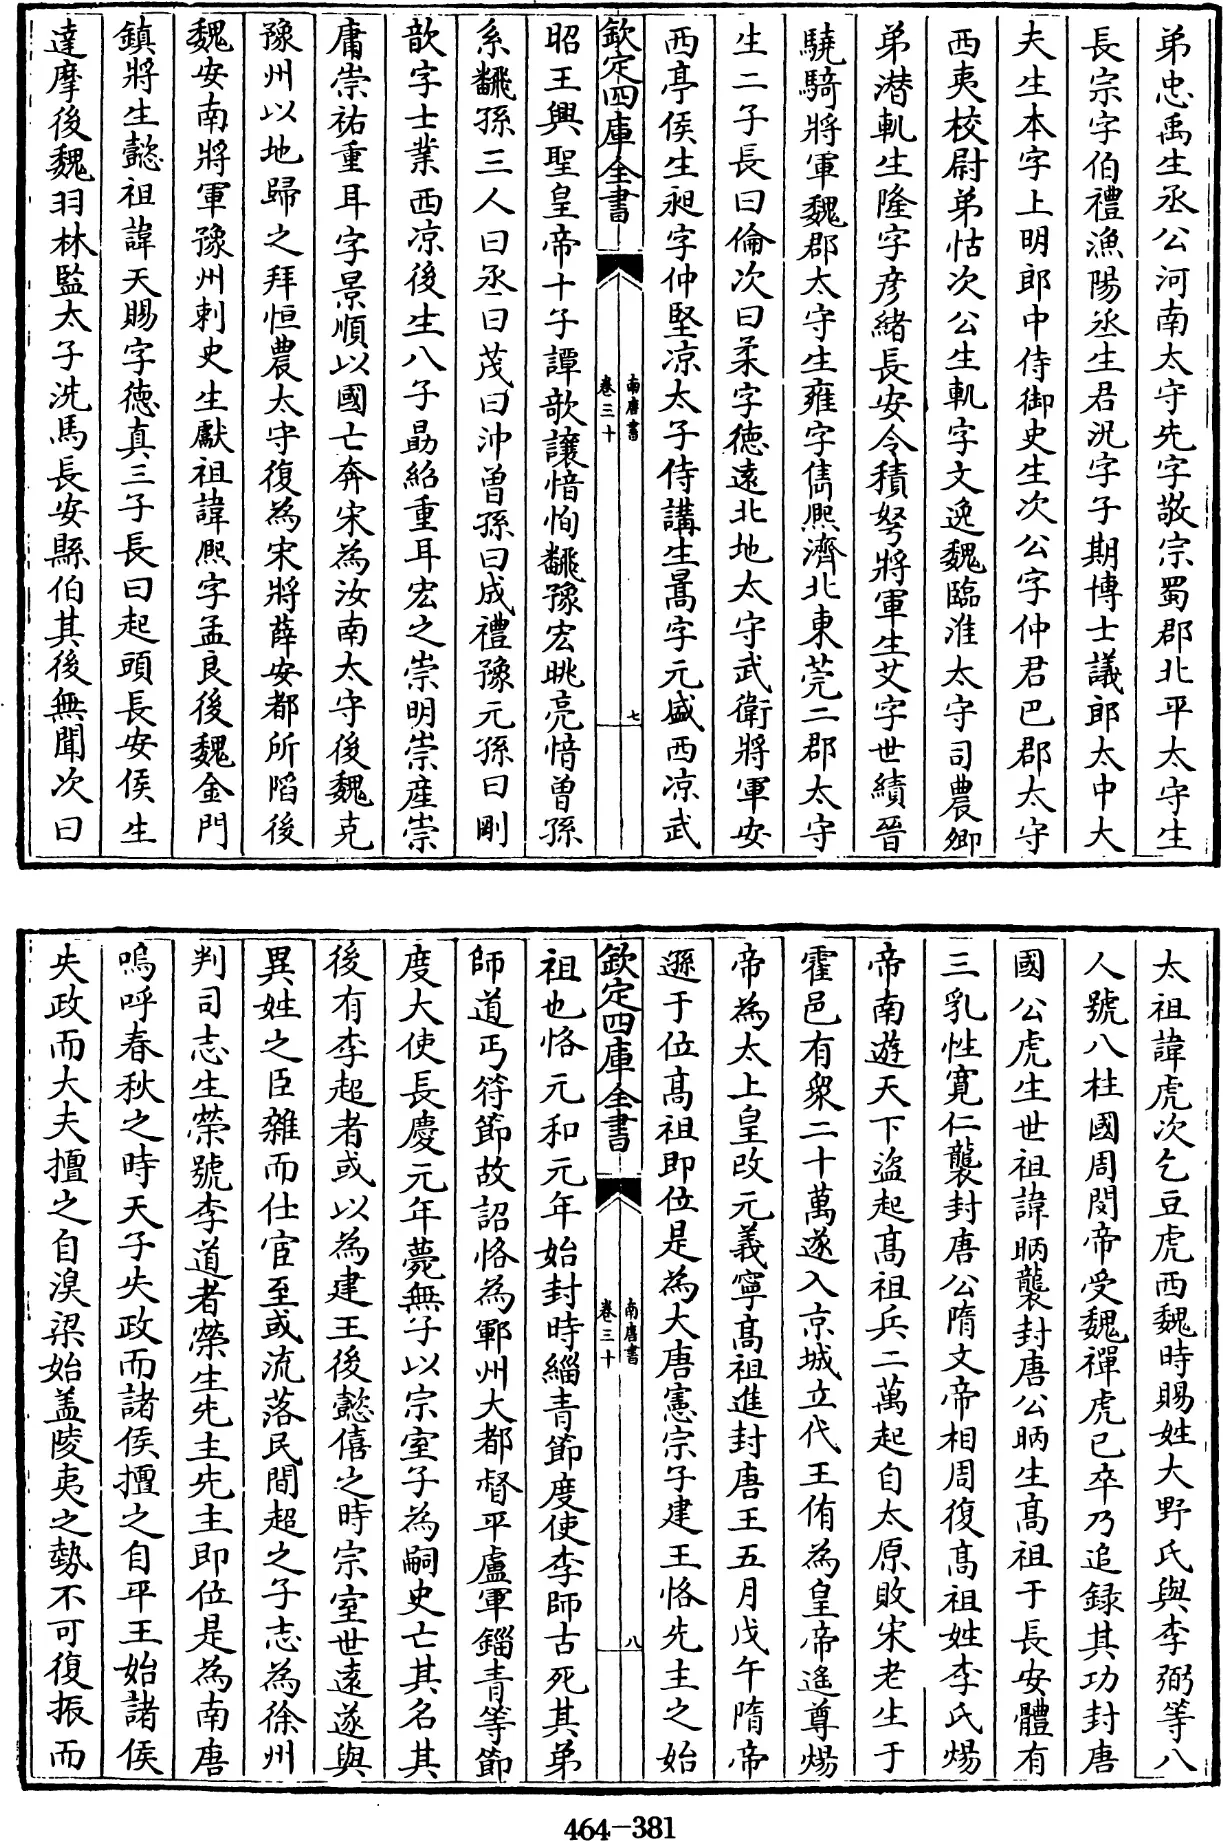 弟忠禹生丞公河南太守先字敬宗蜀郡北平太守生
長宗字伯禮漁陽丞生君況字子期博士議郎太中大
夫生本字上明郎中侍御史生次公字仲君巴郡太守
西夷校尉弟怙次公生軌字文逸魏臨淮太守司農卿
弟潜軌生隆字彥緒長安令積弩將軍生艾字世績晉
驍騎將軍魏郡太守生雍字儁熈濟北東莞二郡太守
生二子長曰倫次曰柔字徳遠北地太守武衛將軍安
西亭侯生昶字仲堅凉太子侍講生暠字元盛西凉武
欽定四庫全書
南唐書
卷三十
七
昭王興聖皇帝十子譚歆讓愔恂飜豫宏眺亮愔曽孫
系飜孫三人曰丞曰茂曰沖曽孫曰成禮豫元孫曰剛
歆字士業西凉後生八子勗紹重耳宏之崇明崇産崇
庸崇祐重耳字景順以國亡奔宋為汝南太守後魏克
豫州以地歸之拜恒農太守復為宋將薛安都所陷後
魏安南將軍豫州刺史生獻祖諱熈字孟良後魏金門
鎮將生懿祖諱天賜字徳真三子長曰起頭長安侯生
達摩後魏羽林監太子洗馬長安縣伯其後無聞次曰
太祖諱虎次乞豆虎西魏時賜姓大野氏與李弼等八
人號八柱國周閔帝受魏禪虎已卒乃追録其功封唐
國公虎生世祖諱昞襲封唐公昞生髙祖于長安體有
三乳性寛仁襲封唐公隋文帝相周復髙祖姓李氏煬
帝南遊天下盜起髙祖兵二萬起自太原敗宋老生于
霍邑有衆二十萬遂入京城立代王侑為皇帝遥尊煬
帝為太上皇改元義寧髙祖進封唐王五月戊午隋帝
遜于位髙祖即位是為大唐憲宗子建王恪先主之始
欽定四庫全書
南唐書
卷三十
八
祖也恪元和元年始封時緇青節度使李師古死其弟
師道丐符節故詔恪為鄆州大都督平盧軍錙青等節
度大使長慶元年薨無子以宗室子為嗣史亡其名其
後有李超者或以為建王後懿僖之時宗室世遠遂與
異姓之臣雜而仕宦至或流落民間超之子志為徐州
判司志生榮號李道者榮生先主先主即位是為南唐
嗚呼春秋之時天子失政而諸侯擅之自平王始諸侯
失政而大夫擅之自溴梁始盖陵夷之勢不可復振而
464-381